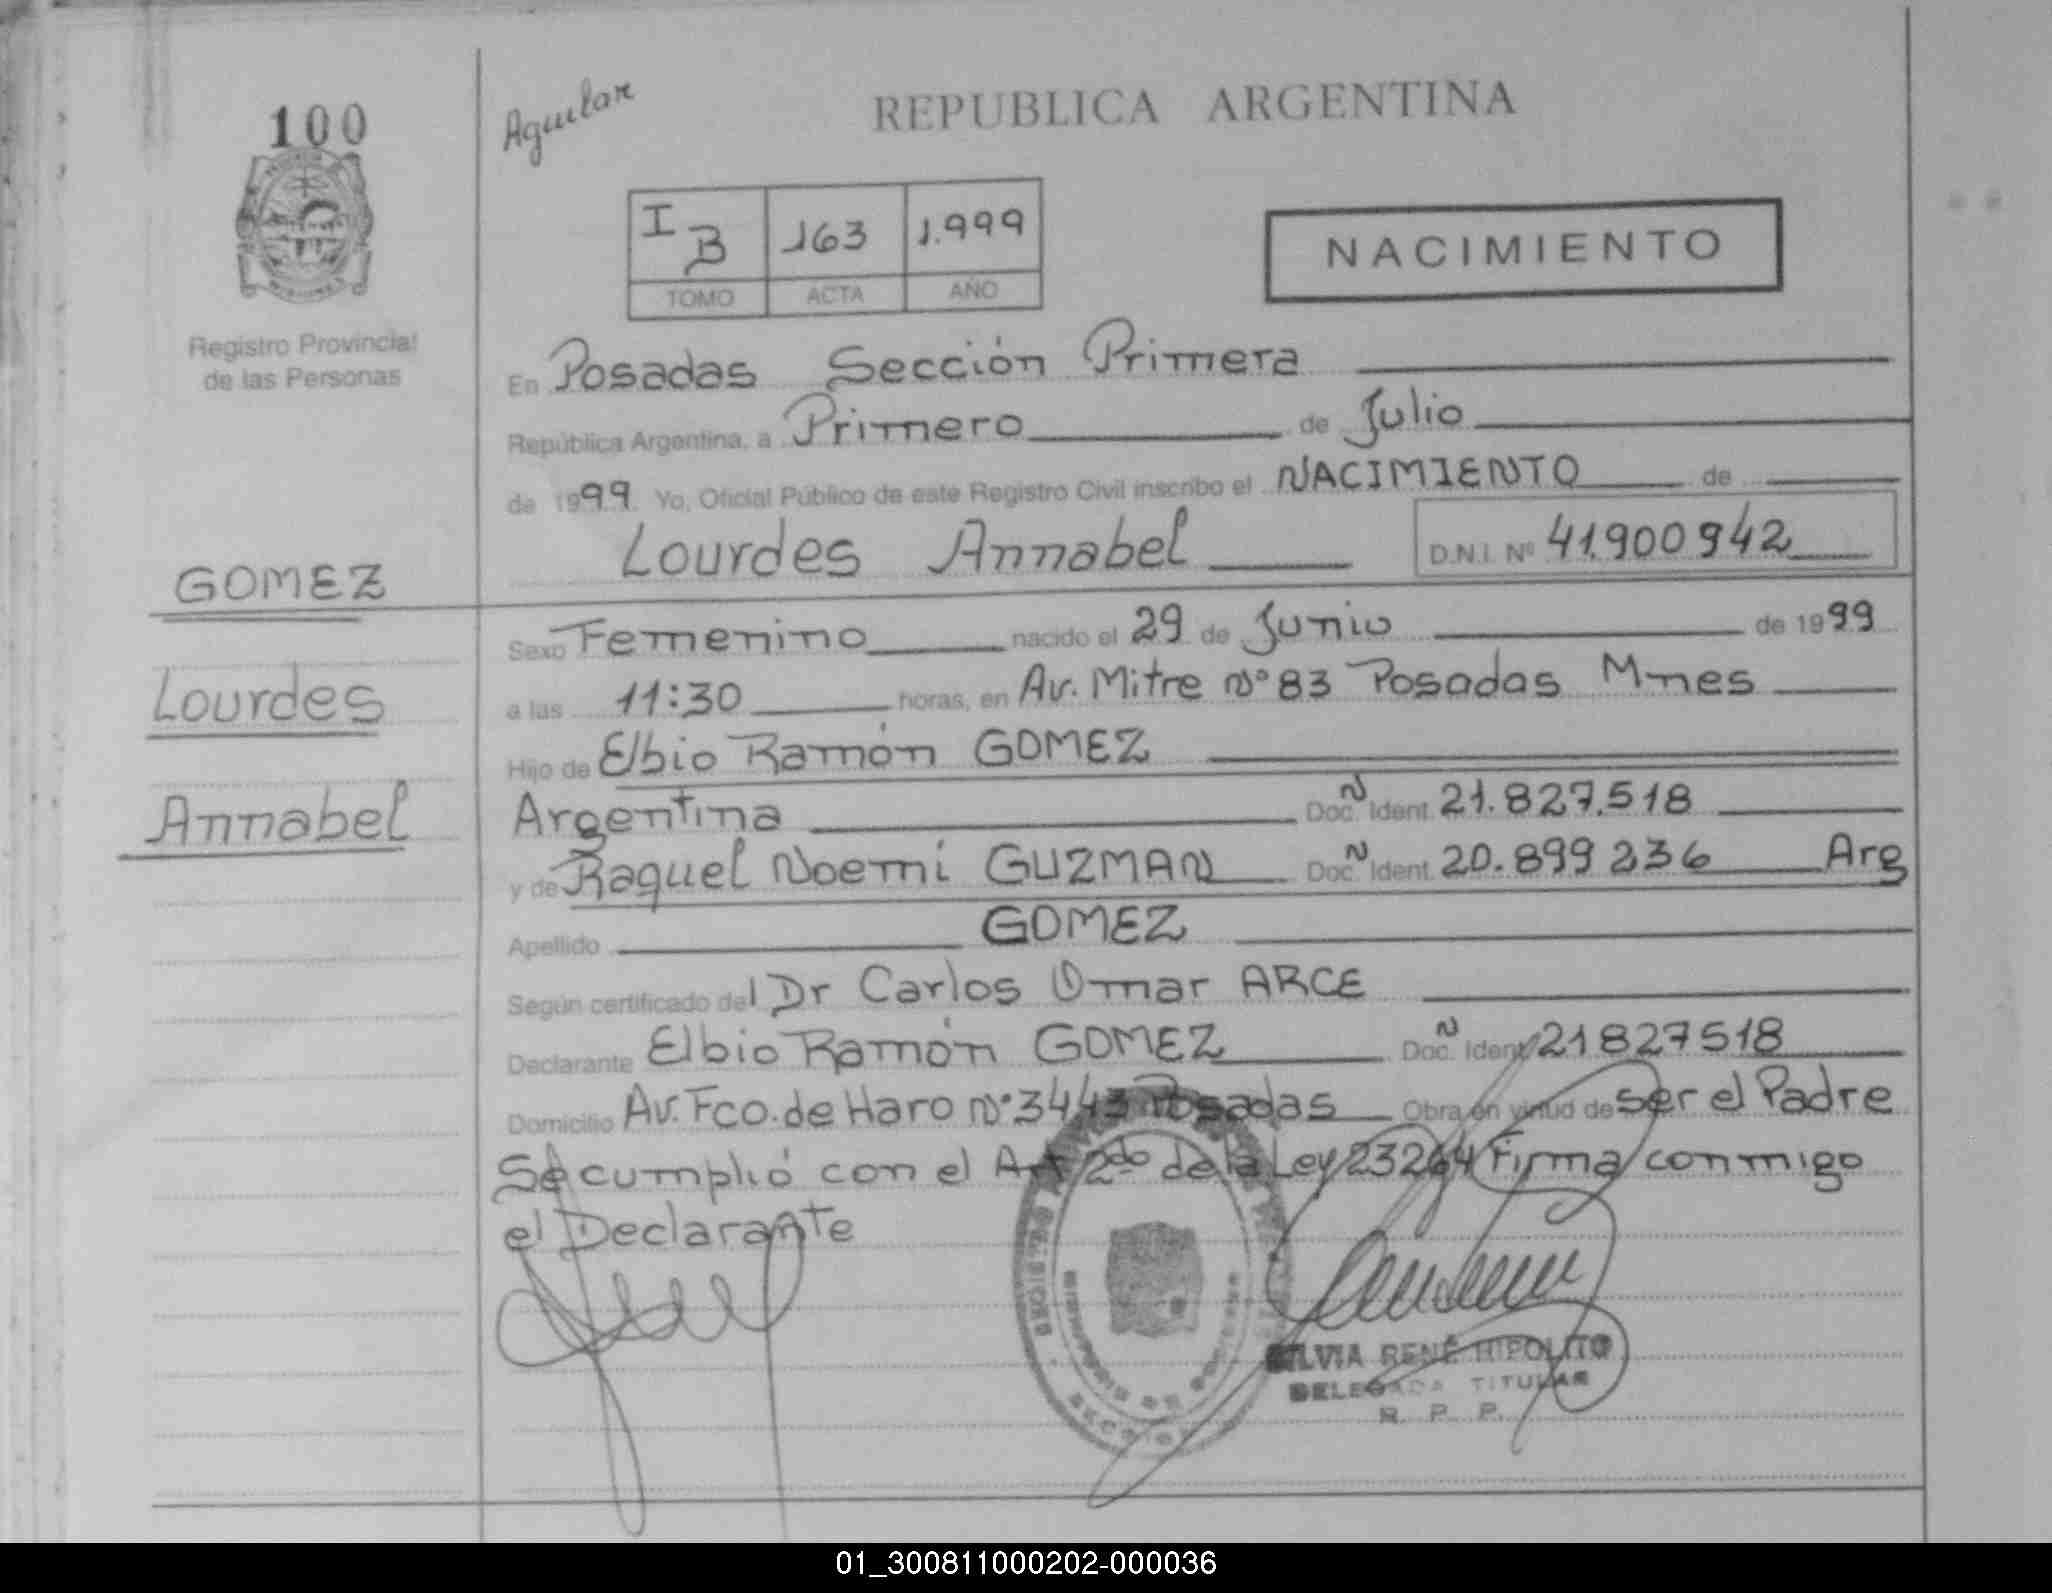 100
Aguilar
REPUBLICA ARGENTINA
I B 163 1.999
TOMO ACTA AÑO
NACIMIENTO
Registro Provincial
de las Personas
En Posadas Sección Primera
República Argentina, a Primero de Julio
de 1999 Yo, Oficial Público de este Registro Civil inscribo el NACIMIENTO de
Lourdes Annabel D.N.I. Nº 41.900942
GOMEZ
Lourdes
Annabel
Sexo Femenino nacido el 29 de Junio de 1999
a las 11:30 horas, en Av. Mitre Nº 83 Posadas Mnes
Hijo de Elbio Ramón GOMEZ
Argentina Doc. N Ident. 21.827.518
y de Raquel Noemí GUZMAN Doc. N Ident. 20.899 236 Arg
Apellido GOMEZ
Según certificado del Dr Carlos Omar ARCE
Declarante Elbio Ramón GOMEZ Doc. N Ident. 21827518
Domicilio Av. Fco. de Haro Nº 3443 Posadas Obra en virtud de ser el Padre
Se cumplió con el Art 2do de la Ley 23264 Firma conmigo
el Declarante
SILVIA RENÉ HIPOLITO
DELEGADA TITULAR
R. P. P.
01_300811000202-000036